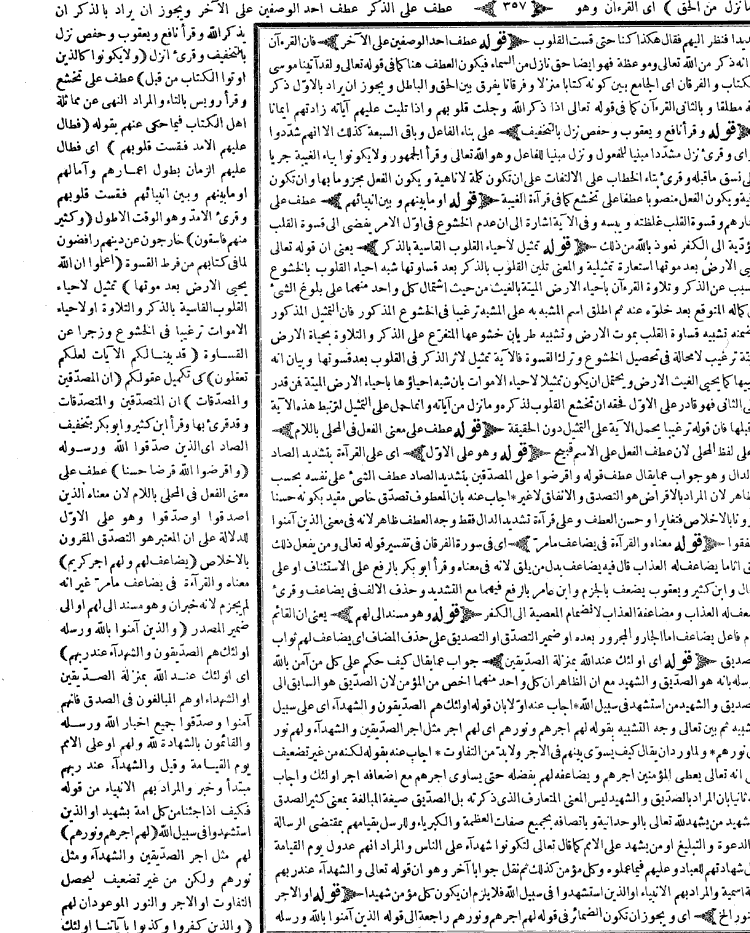 ما نزل من الحق ) اى القرءان وهو ﴿ ٣٥٧ ﴾ عطف على الذكر عطف احد الوصفين على الآخر ويجوز ان يراد بالذكر ان
فنظر اليهم فقال هكذا كنا حتى قست القلوب ﴿ قوله عطف احد الوصفين على الآخر ﴾ فان القرءآن
انه ذكر من الله تعالى وموعظة فهو ايضا حق نازل من السماء فيكون العطف هنا كما فى قوله تعالى ولقد آتينا موسى
الكتاب والفرقان اى الجامع بين كونه كتابا منزلا وفرقانا يفرق بين الحق والباطل ويجوز ان يراد بالاول ذكر
مطلقا وبالثانى القرءآن كما فى قوله تعالى اذا ذكر الله وجلت قلوبهم واذا تليت عليهم آياته زادتهم ايمانا
﴿ قوله وقرأ نافع ويعقوب وحفص نزل بالتخفيف ﴾ على بناء الفاعل وباقى السبعة كذلك الا انهم شدّدوا
اى وقرئ نزل مشدّدا مبنيا للمفعول ونزل مبنيا للفاعل وهو الله تعالى وقرأ الجمهور ولا يكونوا بياء الغيبة جريا
لى نسق ما قبله وقرئ بتاء الخطاب على الالتفات على ان تكون كلة لا ناهية ويكون الفعل مجزوما بها وان تكون
ويكون الفعل منصوبا عطفا على تخشع كما فى قرآءة الغيبة ﴿ قوله او ما بينهم وبين انبيائهم ﴾ عطف على
وقسوة القلب غلظته ويبسه وفى الآية اشارة الى ان عدم الخشوع فى اول الامر يفضى الى قسوة القلب
ؤدّية الى الكفر نعوذ بالله من ذلك ﴿ قوله تمثيل لاحياء القلوب القاسية بالذكر ﴾ يعنى ان قوله تعالى
الارض بعد موتها استعارة تمثيلية والمعنى تلين القلوب بالذكر بعد قساوتها شبه احياء القلوب بالخشوع
سبب عن الذكر وتلاوة القرءآن باحياء الارض الميتة بالغيث من حيث اشتمال كل واحد منهما على بلوغ الشئ
كماله المتوقع بعد خلوّه عنه ثم اطلق اسم المشبه به على المشبه ترغيبا فى الخشوع المذكور فان التمثيل المذكور
تشبيه قساوة القلب بموت الارض وتشبيه طريان خشوعها المتفرّع على الذكر والتلاوة بحياة الارض
ترغيب لا محالة فى تحصيل الخشوع وترك القسوة فالآية تمثيل لاثر الذكر فى القلوب بعد قسوتها وبيان انه
كما يحيى الغيث الارض ويحتمل ان يكون تمثيلا لاحياء الاموات بان شبه احياؤها باحياء الارض الميتة لمن قدر
الثانى فهو قادر على الاول فحقه ان تخشع القلوب لذكره وما نزل من آياته وانما حمل على التمثيل لترتبط هذه الآية
قبلها فان قوله ترغيبا يحمل الآية على التمثيل دون الحقيقة ﴿ قوله عطف على معنى الفعل فى المحلى باللام ﴾
لفظ المحلى لان عطف الفعل على الاسم قبيح ﴿ قوله وهو على الاول ﴾ اى على القرآءة بتشديد الصاد
والدال وهو جواب عما يقال عطف قوله واقرضوا على المصدّقين بتشديد الصاد عطف الشئ على نفسه بحسب
ظاهر لان المراد بالاقراض هو التصدق والانفاق لا غير * اجاب عنه بان المعطوف تصدّق خاص مقيد بكونه حسنا
بالاخلاص فتغايرا وحسن العطف وعلى قرآءة تشديد الدال فقط وجه العطف ظاهر لانه فى معنى الذين آمنوا
﴿ قوله معناه والقرآءة فى يضاعف مامرّ ﴾ اى فى سورة الفرقان فى تفسير قوله تعالى ومن يفعل ذلك
يلق اثاما يضاعف له العذاب قال فيه يضاعف بدل من يلق لانه فى معناه وقرأ ابو بكر بالرفع على الاستئناف او على
وابن كثير ويعقوب يضعف بالجزم وابن عامر بالرفع فيهما مع التشديد وحذف الالف فى يضاعف وقرئ
له العذاب ومضاعفة العذاب لانضمام المعصية الى الكفر ﴿ قوله وهو مسند الى لهم ﴾ يعنى ان القائم
فاعل يضاعف اما الجار والمجرور بعده او ضمير التصدّق او التصديق على حذف المضاف اى يضاعف لهم ثواب
صديق ﴿ قوله اى اولئك عند الله بمنزلة الصدّيقين ﴾ جواب عما يقال كيف حكم على كل من آمن بالله
رسله بانه هو الصدّيق والشهيد مع ان الظاهر ان كل واحد منهما اخص من المؤمن لان الصدّيق هو السابق الى
والشهيد من استشهد فى سبيل الله * اجاب عنه اولا بان قوله اولئك هم الصدّيقون والشهدآء اى على سبيل
ثم بين تعالى وجه التشبيه بقوله لهم اجرهم ونورهم اى لهم اجر مثل اجر الصدّيقين والشهدآء ولهم نور
نورهم * ولما ورد ان يقال كيف يسوّى بينهم فى الاجر ولا بدّ من التفاوت * اجاب عنه بقوله لكنه من غير تضعيف
انه تعالى يعطى المؤمنين اجرهم ويضاعفه لهم بفضله حتى يساوى اجرهم مع اضعافه اجر اولئك واجاب
ثانيا بان المراد بالصدّيق والشهيد ليس المعنى المتعارف الذى ذكرته بل الصدّيق صيغة المبالغة بمعنى كثير الصدق
شهيد من يشهد لله تعالى بالوحدانية وباتصافه بجميع صفات العظمة والكبرياء وللرسل بقيامهم بمقتضى الرسالة
الدعوة والتبليغ او من يشهد على الامم كما قال تعالى لتكونوا شهدآء على الناس والمراد انهم عدول يوم القيامة
شهادتهم للعباد وعليهم فيما عملوه وكل مؤمن كذلك ثم نقل جوابا آخر وهو ان قوله تعالى والشهدآء عند ربهم
اسمية والمراد بهم الانبياء او الذين استشهدوا فى سبيل الله فلا يلزم ان يكون كل مؤمن شهيدا ﴿ قوله او الاجر
نور الخ ﴾ اى ويجوز ان تكون الضمائر فى قوله لهم اجرهم ونورهم راجعة الى قوله الذين آمنوا بالله ورسله
يذكر الله وقرأ نافع ويعقوب وحفص نزل
بالتخفيف وقرئ انزل ( ولا يكونوا كالذين
اوتوا الكتاب من قبل ) عطف على تخشع
وقرأ رويس بالتاء والمراد النهى عن مماثلة
اهل الكتاب فيما حكى عنهم بقوله ( فطال
عليهم الامد فقست قلوبهم ) اى فطال
عليهم الزمان بطول اعمارهم وآمالهم
او ما بينهم وبين انبيائهم فقست قلوبهم
وقرئ الامدّ وهو الوقت الاطول ( وكثير
منهم فاسقون ) خارجون عن دينهم رافضون
لما فى كتابهم من فرط القسوة ( اعلموا ان الله
يحيى الارض بعد موتها ) تمثيل لاحياء
القلوب القاسية بالذكر والتلاوة او لاحياء
الاموات ترغيبا فى الخشوع وزجرا عن
القساوة ( قد بينا لكم الآيات لعلكم
تعقلون ) كى تكمل عقولكم ( ان المصدّقين
والمصدّقات ) ان المتصدّقين والمتصدّقات
وقد قرئ بها وقرأ ابن كثير وابو بكر بتخفيف
الصاد اى الذين صدّقوا الله ورسوله
( واقرضوا الله قرضا حسنا ) عطف على
معنى الفعل فى المحلى باللام لان معناه الذين
اصدقوا او صدّقوا وهو على الاوّل
للدلالة على ان المعتبر هو التصدّق المقرون
بالاخلاص ( يضاعف لهم ولهم اجر كريم )
معناه والقرآءة فى يضاعف مامرّ غير انه
لم يجزم لانه خبر ان وهو مسند الى لهم او الى
ضمير المصدر ( والذين آمنوا بالله ورسله
اولئك هم الصدّيقون والشهدآء عند ربهم )
اى اولئك عند الله بمنزلة الصدّيقين
والشهدآء او هم المبالغون فى الصدق فانهم
آمنوا وصدّقوا جميع اخبار الله ورسله
والقائمون بالشهادة لله ولهم او على الامم
يوم القيامة وقيل والشهدآء عند ربهم
مبتدأ وخبر والمراد بهم الانبياء من قوله
فكيف اذا جئنا من كل امة بشهيد او الذين
استشهدوا فى سبيل الله ( لهم اجرهم ونورهم )
لهم مثل اجر الصدّيقين والشهدآء ومثل
نورهم ولكن من غير تضعيف ليحصل
التفاوت او الاجر والنور الموعودان لهم
( والذين كفروا وكذبوا بآياتنا اولئك